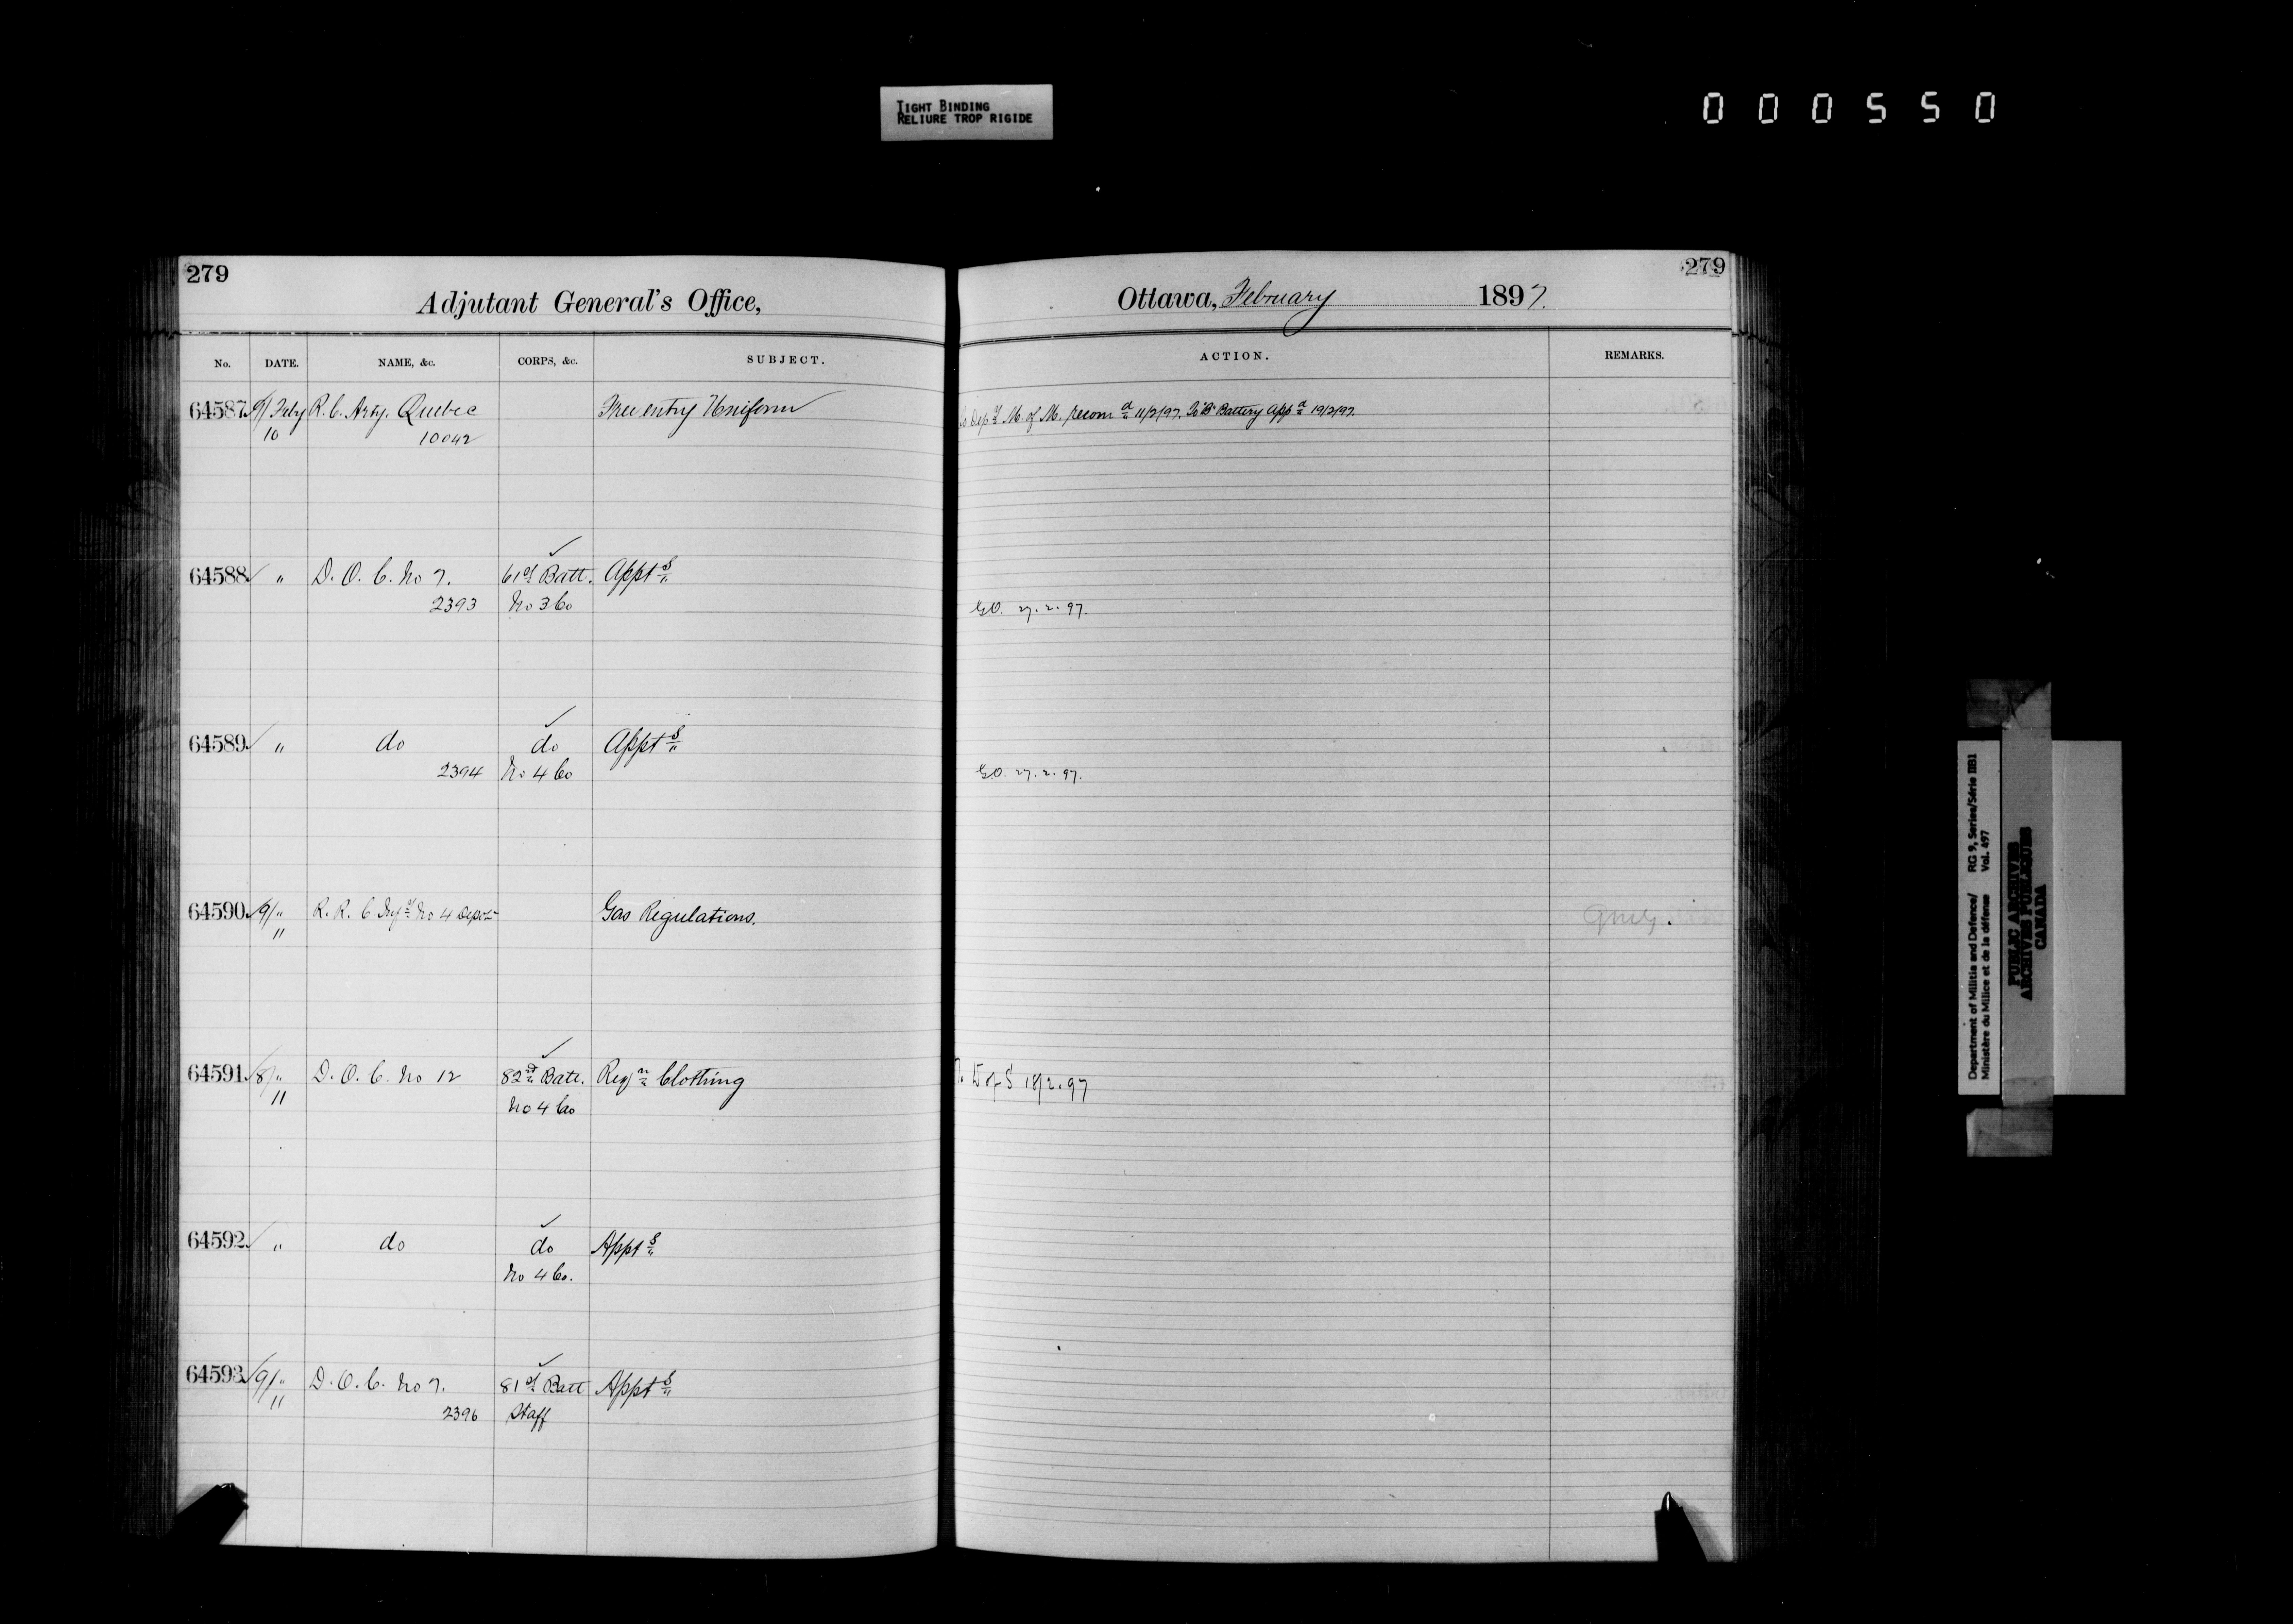 TIGHT BINDING
RELIURE TROP RIGIDE
000550
279
Adjutant General's Office,
No. DATE. NAME, &c. CORPS, &c. SUBJECT.
64587 9/ Feby R. C. Arty. Quebec Free entry Uniform
10 10042
64588 " D. O. C. No 7. 61st Batt. Appts
2393 No 3 Co
64589 " do do Appts
2394 No 4 Co
64590 9/" R. R. C. Infy No 4 Depot Gas Regulations.
11
64591 8/" D. O. C. No 12 82nd Batt. Reqn Clothing
11 No 4 Co
64592 " do do Appts
No 4 Co.
64593 9/" D. O. C. No 7. 81st Batt Appts
11 2396 Staff
279
Ottawa, February 1897.
ACTION. REMARKS.
Depy M. of M. recomd 11/2/97. To "B" Battery appd 19/2/97.
G.O. 27.2.97.
G.O. 27.2.97.
D of S 18/2.97
Department of Militia and Defence/ RG 9, Series/Série IIB1
Ministère du Milice et de la défense Vol. 497
PUBLIC ARCHIVES
ARCHIVES PUBLIQUES
CANADA